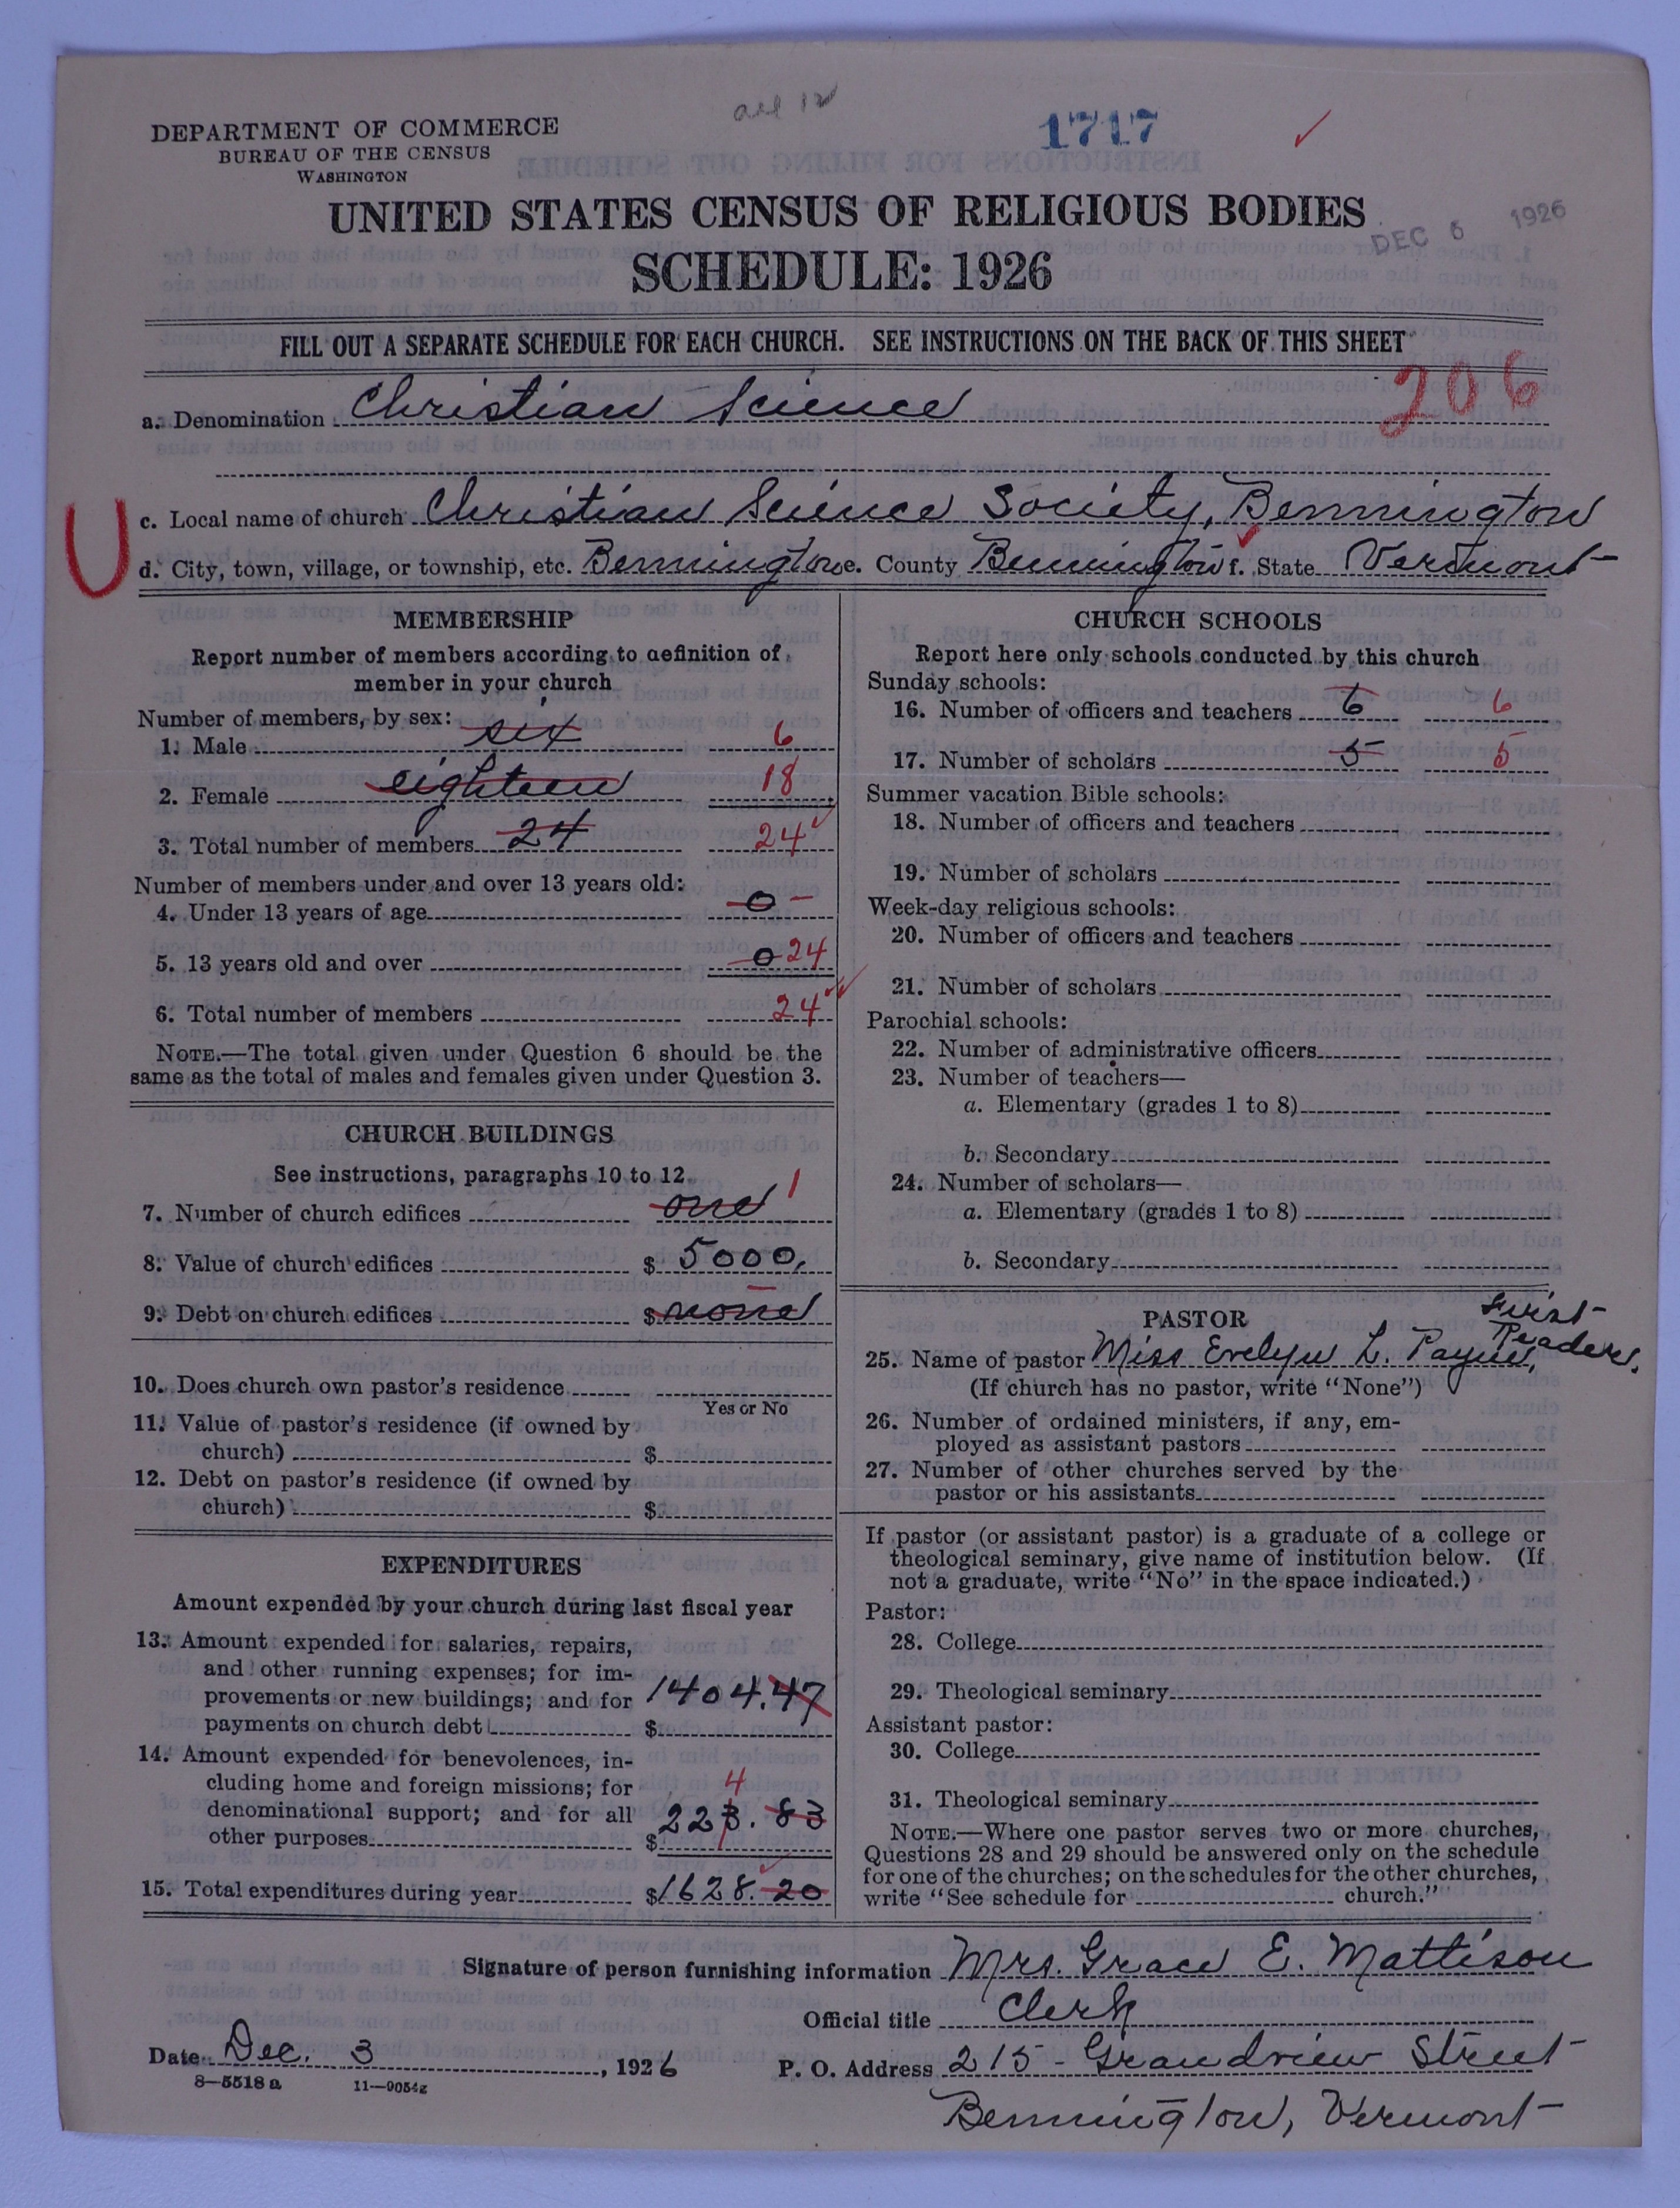 all 12
1717
DEPARTMENT OF COMMERCE
BUREAU OF THE CENSUS
WASHINGTON
UNITED STATES CENSUS OF RELIGIOUS BODIES
DEC 6 1926
SCHEDULE: 1926
FILL OUT A SEPARATE SCHEDULE FOR EACH CHURCH. SEE INSTRUCTIONS ON THE BACK OF THIS SHEET
206
a. Denomination Christian Science
U
c. Local name of church Christian Science Society, Bennington
d. City, town, village, or township, etc. Bennington e. County Bennington f. State Vermont
MEMBERSHIP
Report number of members according to definition of
member in your church
Number of members, by sex:
1. Male six 6
2. Female eighteen 18
3. Total number of members 24 24
Number of members under and over 13 years old:
4. Under 13 years of age 0 –
5. 13 years old and over 0 24
6. Total number of members 24
NOTE.—The total given under Question 6 should be the
same as the total of males and females given under Question 3.
CHURCH BUILDINGS
See instructions, paragraphs 10 to 12
7. Number of church edifices one 1
8. Value of church edifices $ 5000.
9. Debt on church edifices $ none –
10. Does church own pastor's residence
Yes or No
11. Value of pastor's residence (if owned by
church) $
12. Debt on pastor's residence (if owned by
church) $
EXPENDITURES
Amount expended by your church during last fiscal year
13. Amount expended for salaries, repairs,
and other running expenses; for im-
provements or new buildings; and for
payments on church debt $ 1404.47
14. Amount expended for benevolences, in-
cluding home and foreign missions; for
denominational support; and for all
other purposes $ 223.83 4
15. Total expenditures during year $1628.20
CHURCH SCHOOLS
Report here only schools conducted by this church
Sunday schools:
16. Number of officers and teachers 6 6
17. Number of scholars 5 5
Summer vacation Bible schools:
18. Number of officers and teachers
19. Number of scholars
Week-day religious schools:
20. Number of officers and teachers
21. Number of scholars
Parochial schools:
22. Number of administrative officers
23. Number of teachers—
a. Elementary (grades 1 to 8)
b. Secondary
24. Number of scholars—
a. Elementary (grades 1 to 8)
b. Secondary
PASTOR
25. Name of pastor Miss Evelyn L. Payne, First Reader.
(If church has no pastor, write "None")
26. Number of ordained ministers, if any, em-
ployed as assistant pastors
27. Number of other churches served by the
pastor or his assistants
If pastor (or assistant pastor) is a graduate of a college or
theological seminary, give name of institution below. (If
not a graduate, write "No" in the space indicated.)
Pastor:
28. College
29. Theological seminary
Assistant pastor:
30. College
31. Theological seminary
NOTE.—Where one pastor serves two or more churches,
Questions 28 and 29 should be answered only on the schedule
for one of the churches; on the schedules for the other churches,
write "See schedule for church."
Signature of person furnishing information Mrs. Grace E. Mattison
Official title Clerk
Date Dec. 3, 1926
P. O. Address 215 - Grandview Street
8—5518 a 11—9054z
Bennington, Vermont